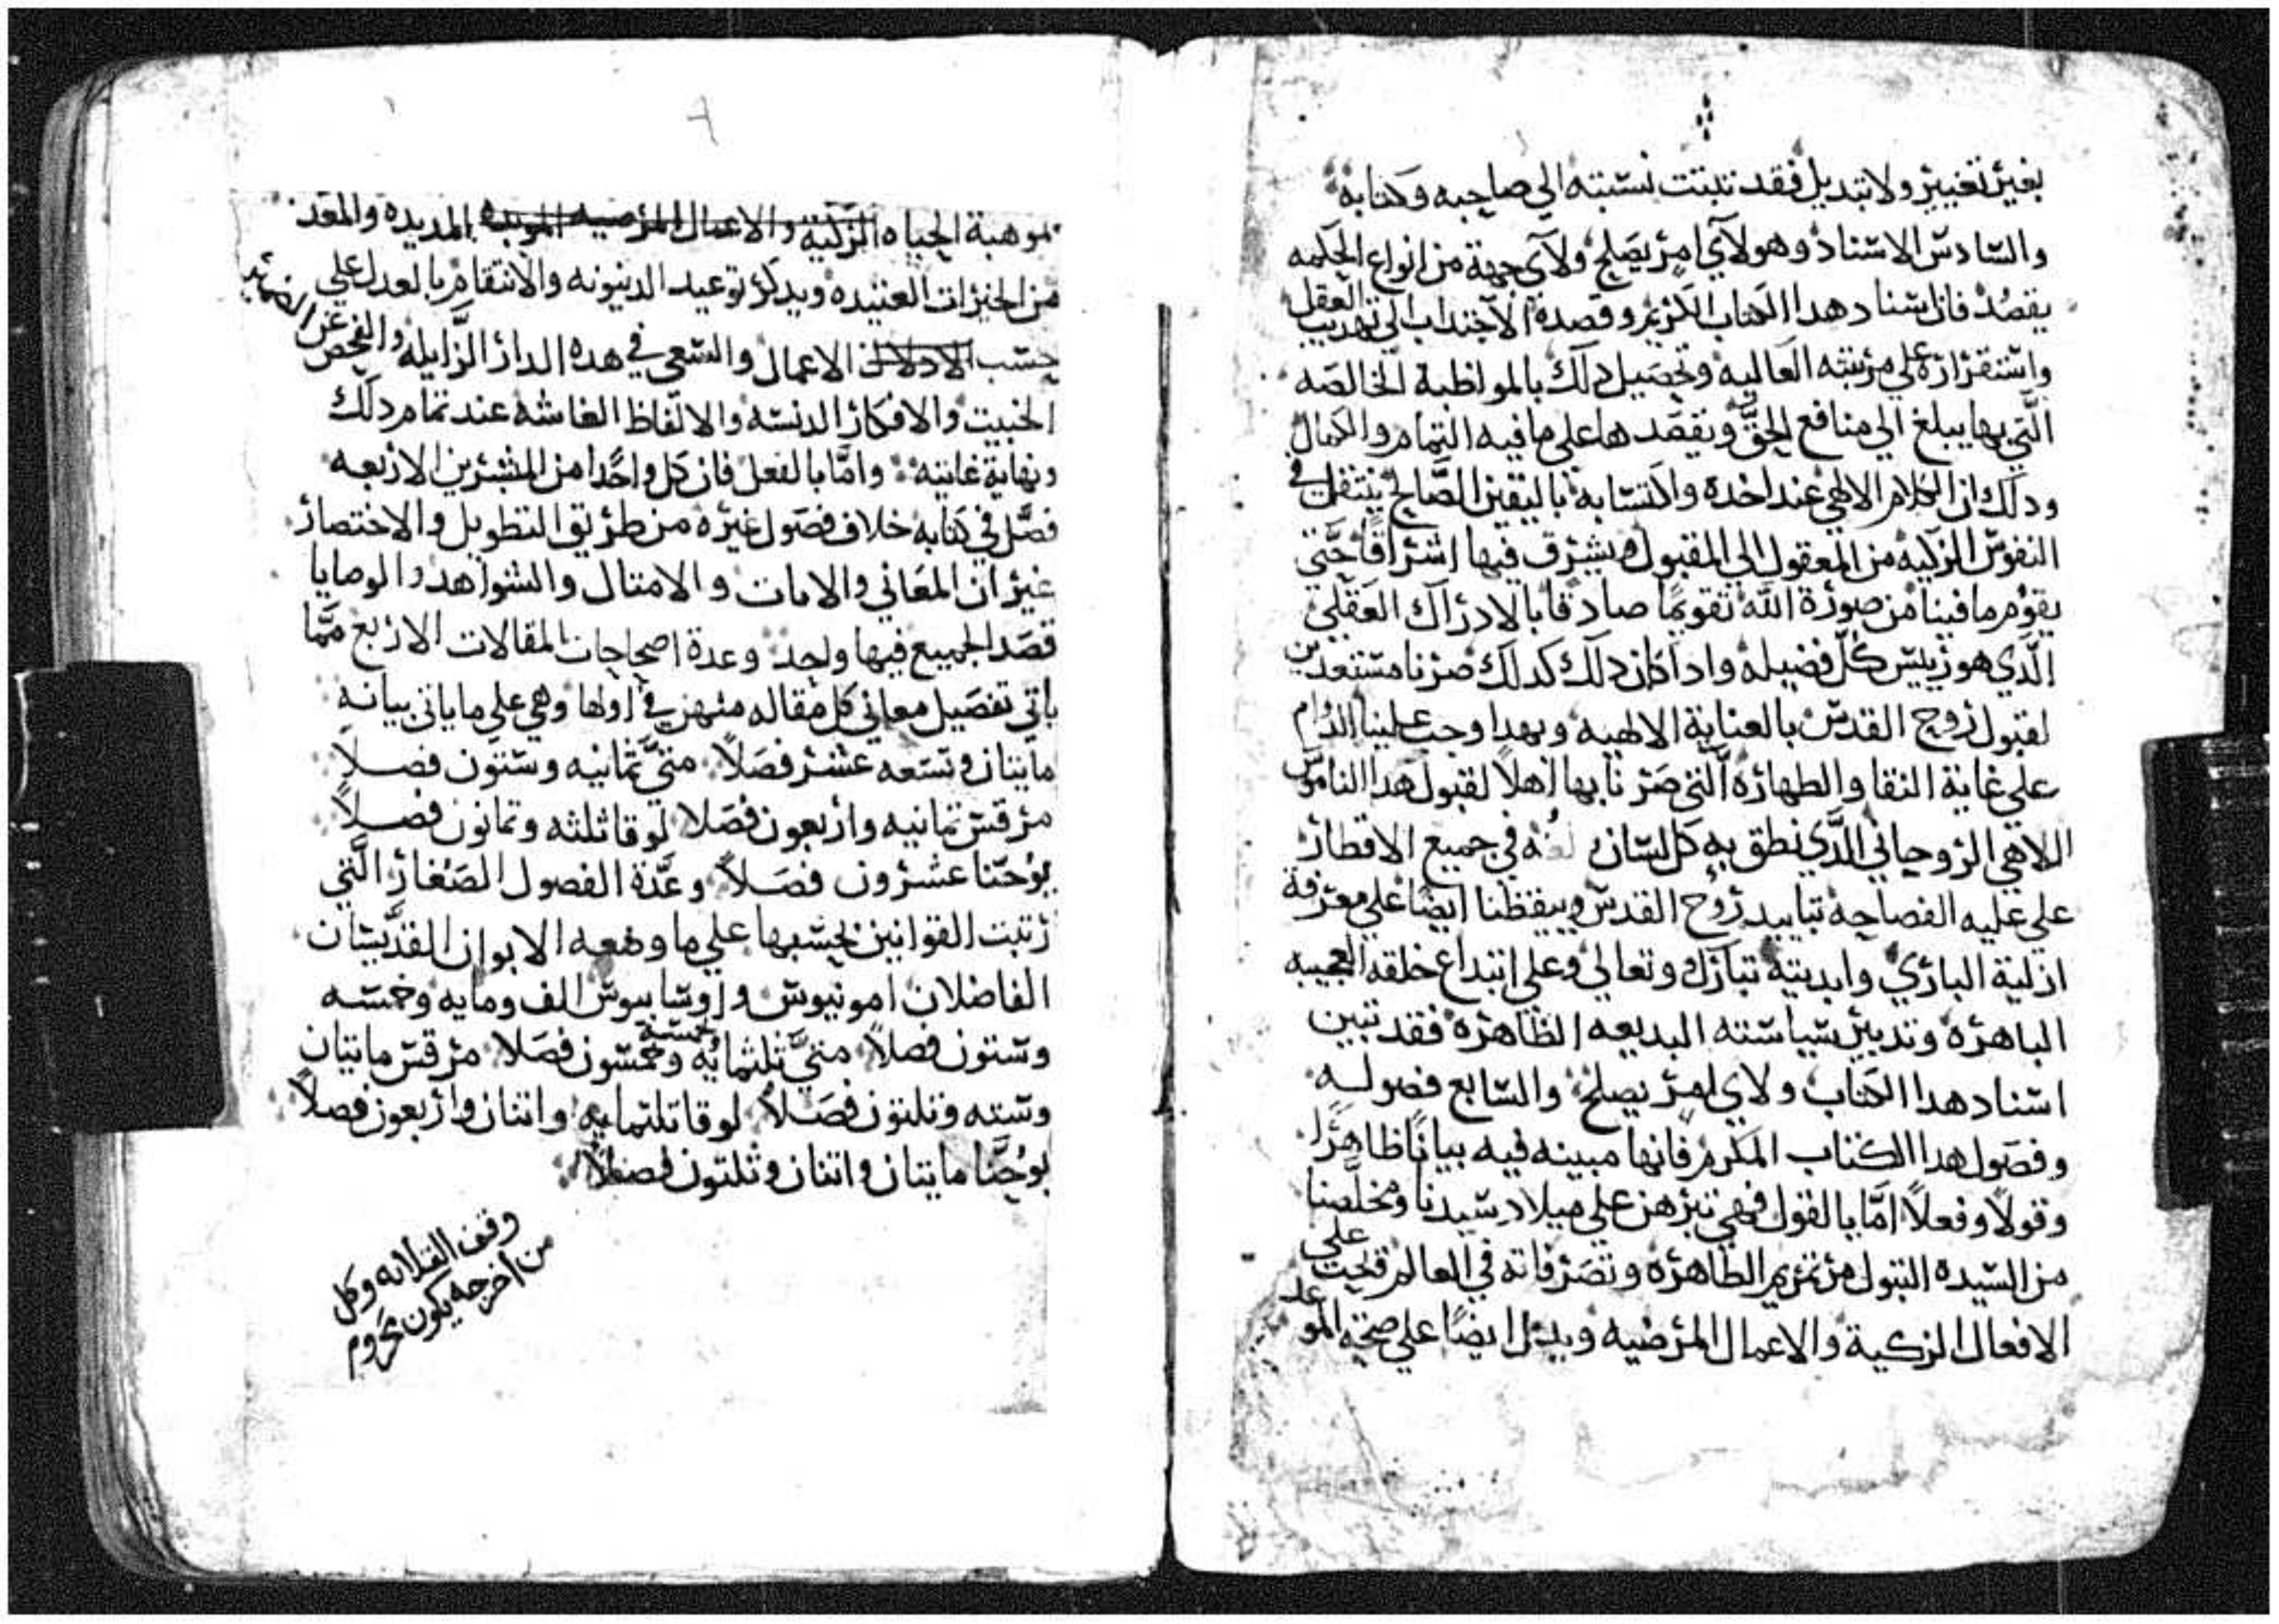 بغير تغيير ولا تبديل فقد تبتت نسبته الي صاحبه وكتابه
والسادس الاسناد وهو لاي امر يصلح ولاي جهة من انواع الحكمه
يقصد فان اسناد هدا الكتاب الكريم وقصده الاجتداب الي تهديب العقل
واستقراره علي مرتبته العاليه وتحصيل دلك بالمواظبة الخالصه
التي بها يبلغ الي منافع الحق ويقصدها علي ما فيه التمام والكمال
ودلك ان الكلام الالاهي عند اخده واكتسابه باليقين الصالح ينتقل في
النفوس الزكيه من المعقول الي المقبول ويشرق فيها اشراقا حتي
يقوم ما فينا من صورة الله تقويما صادقا بالادراك العقلي
الدي هو رييس كل فضيله وادا كان دلك كدلك صرنا مستعدين
لقبول روح القدس بالعناية الالهيه وبهدا وجب علينا الدوام
علي غاية النقا والطهاره التي صرنا بها اهلا لقبول هدا الناموس
اللاهي الروحاني الدي نطق به كل لسان لغه في جميع الاقطار
علي عليه الفصاحه بتاييد روح القدس وييقظنا ايضا علي معرفة
ازلية الباري وابديته تبارك وتعالي وعلي ابتداع خلقه العجيبه
الباهره وتدبير سياسته البديعه الظاهره فقد تبين
اسناد هدا الكتاب ولاي امر يصلح والسابع فصوله
وفصول هدا الكتاب المكرم فانها مبينه فيه بيانا ظاهرا
وقولا وفعلا اما بالقول فهي تبرهن علي ميلاد سيدنا ومخلصنا
من السيده البتول مرتمريم الطاهره وتصرفاته في العالم وتحت علي
الافعال الزكية والاعمال المرضيه ويدل ايضا علي صحة الموعد
بموهبة الحياه الزكية والاعمال المرضيه الموبده المديده والمعد
من الخيرات العتيده ويدكر توعيد الدينونه والانتقام بالعدل علي
حسب الادلال الاعمال والسعي في هده الدار الزايله والفحص عن الضماير
الخبيت والافكار الدنسه والالفاظ الغاشه عند تمام دلك
ونهاية غايته واما بالفعل فان كل واحدا من المبشرين الاربعه
فصل في كتابه خلاف فصول غيره من طريق التطويل والاختصار
غير ان المعاني والايات والامتال والشواهد والوصايا
قصد الجميع فيها واحد وعدة اصحاحات المقالات الاربع مما
ياتي تفصيل معاني كل مقاله منهن في اولها وهي علي ما ياتي بيانه
مايتان وتسعه عشر فصلا متي تمانيه وستون فصلا
مرقس تمانيه واربعون فصلا لوقا ثلثه وتمانون فصلا
يوحنا عشرون فصلا وعدة الفصول الصغار التي
رتبت القوانين بحسبها علي ما وضعه الابوان القديسان
الفاضلان امونيوس واوسابيوس الف ومايه وخمسه
وستون فصلا متي ثلثمايه وخمسة وخمسون فصلا مرقس مايتان
وسته وتلتون فصلا لوقا تلتمايه واتنان واربعون فصلا
يوحنا مايتان واتنان وثلتون فصلا
وقف القلايه وكل
من اخرجه يكون محروم